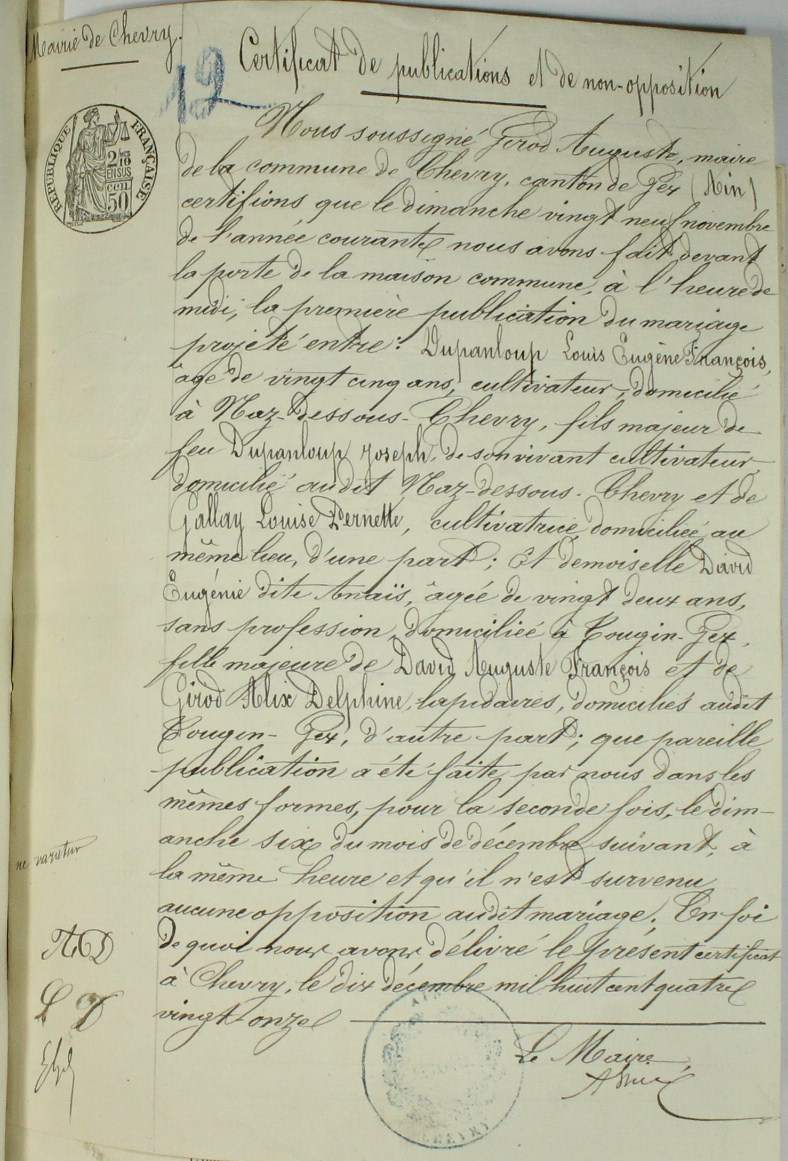 Mairie de Chevry.
12
Certificat de publications et de non-opposition
RÉPUBLIQUE FRANÇAISE
50
Nous soussigné Girod Auguste, maire
de la commune de Chevry, canton de Gex (Ain)
certifions que le dimanche vingt neuf novembre
de l'année courante nous avons fait devant
la porte de la maison commune, à l'heure de
midi, la première publication du mariage
projeté entre: Dupanloup Louis Eugène François,
âgé de vingt cinq ans, cultivateur, domicilié
à Naz-dessous-Chevry, fils majeur de
feu Dupanloup Joseph de son vivant cultivateur
domicilié audit Naz-dessous-Chevry et de
Gallay Louise Pernette, cultivatrice domiciliée au
même lieu, d'une part; Et demoiselle David
Eugénie dite Anaïs, âgée de vingt deux ans,
sans profession, domiciliée à Tougin-Gex,
fille majeure de David Auguste François et de
Girod Alix Delphine, lapidaires, domiciliés audit
Tougin-Gex, d'autre part; que pareille
publication a été faite par nous dans les
mêmes formes, pour la seconde fois, le dim-
anche six du mois de décembre suivant, à
la même heure et qu'il n'est survenu
aucune opposition audit mariage. En foi
de quoi nous avons délivré le présent certificat
à Chevry, le dix décembre mil huit cent quatre
vingt onze
ne varietur
AD
L D
Le Maire,
CHEVRY